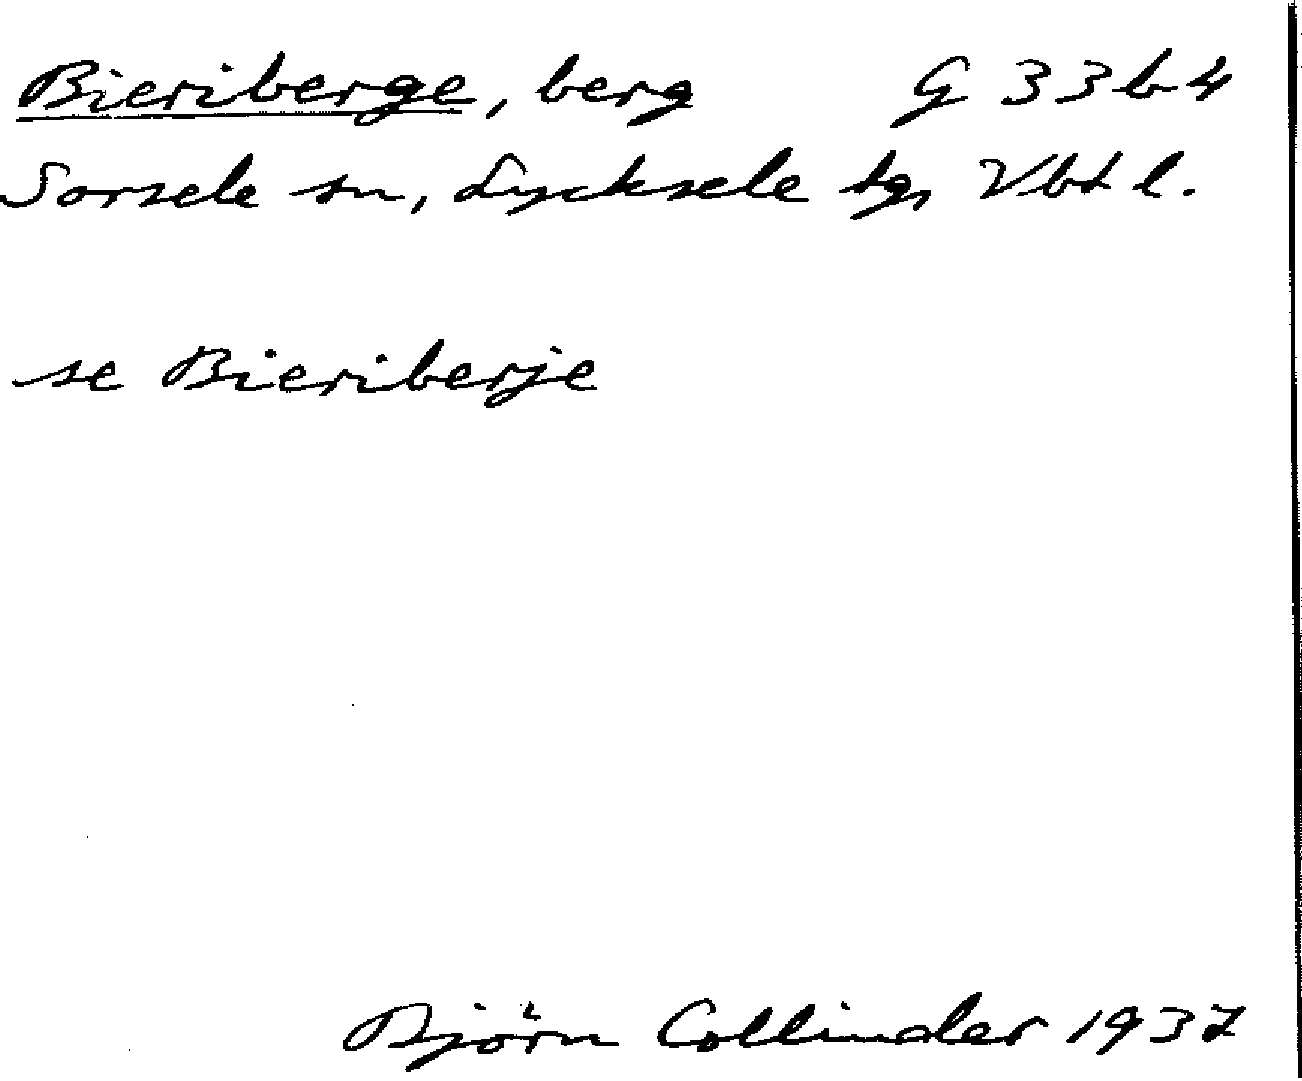 Bieriberge, berg G 33b4
Sorsele sn, Lycksele tg, Vbtl.
se Bieriberje
Björn Collinder 1937